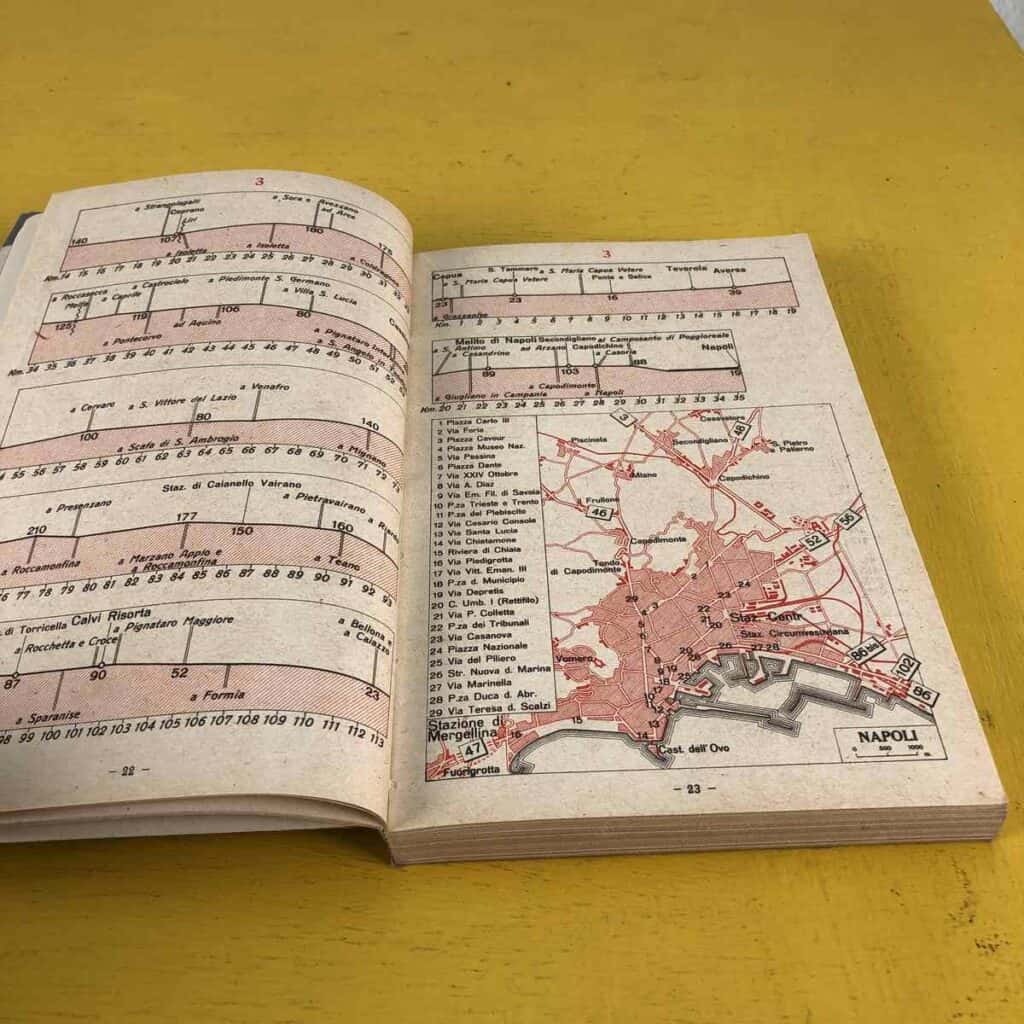 3
a Strangolagalli
Ceprano
Liri
a Sora e Avezzano
ad Arce
140
107
180
175
a Isoletta
a Isoletta
Km.14 15 16 17 18 19 20 21 22 23 24 25 26 27 28 29 30 31 32
a Roccasecca
Melfa
a Caprile
a Castrocielo
a Piedimonte S. Germano
a Villa S. Lucia
125
119
106
80
a Pontecorvo
ad Aquino
a Pignataro
a S. Angelo in
Km.34 35 36 37 38 39 40 41 42 43 44 45 46 47 48 49 50 51 52
a Cervaro
a S. Vittore del Lazio
a Venafro
100
80
140
a Scafa di S. Ambrogio
a Mignano
54 55 56 57 58 59 60 61 62 63 64 65 66 67 68 69 70 71 72 73
a Presenzano
Staz. di Caianello Vairano
a Pietravairano
210
177
150
160
a Roccamonfina
a Marzano Appio e
a Roccamonfina
a Teano
76 77 78 79 80 81 82 83 84 85 86 87 88 89 90 91 92 93
di Torricella
Calvi Risorta
a Rocchetta e Croce
a Pignataro Maggiore
a Bellona
a Caiazzo
87
90
52
23
a Sparanise
a Formia
98 99 100 101 102 103 104 105 106 107 108 109 110 111 112 113
- 22 -
3
Capua
a S. Maria Capua Vetere
S. Tammaro
a S. Maria Capua Vetere
Ponte a Selice
Teverola
Aversa
23
23
16
39
a Grazzanise
Km. 1 2 3 4 5 6 7 8 9 10 11 12 13 14 15 16 17 18 19
a S. Antimo
a Casandrino
Melito di Napoli
ad Arzano
Secondigliano
Capodichino
al Camposanto di Poggioreale
a Casoria
Napoli
89
103
98
19
a Giugliano in Campania
a Capodimonte
a Napoli
Km.20 21 22 23 24 25 26 27 28 29 30 31 32 33 34 35
1 Piazza Carlo III
2 Via Foria
3 Piazza Cavour
4 Piazza Museo Naz.
5 Via Pessina
6 Piazza Dante
7 Via XXIV Ottobre
8 Via A. Diaz
9 Via Em. Fil. di Savoia
10 P.za Trieste e Trento
11 P.za del Plebiscito
12 Via Cesario Console
13 Via Santa Lucia
14 Via Chiatamone
15 Riviera di Chiaia
16 Via Piedigrotta
17 Via Vitt. Eman. III
18 P.za d. Municipio
19 Via Depretis
20 C. Umb. I (Rettifilo)
21 Via P. Colletta
22 P.za dei Tribunali
23 Via Casanova
24 Piazza Nazionale
25 Via del Piliero
26 Str. Nuova d. Marina
27 Via Marinella
28 P.za Duca d. Abr.
29 Via Teresa d. Scalzi
Stazione di
Mergellina
47
Fuorigrotta
3
Piscinola
Secondigliano
Casavatore
48
S. Pietro
a Patierno
Miano
Capodichino
Frullone
46
Capodimonte
Tondo
di Capodimonte
52
56
Staz. Centr.
Staz. Circumvesuviana
Vomero
86 bis
102
86
Cast. dell'Ovo
NAPOLI
0 500 1000
m.
- 23 -